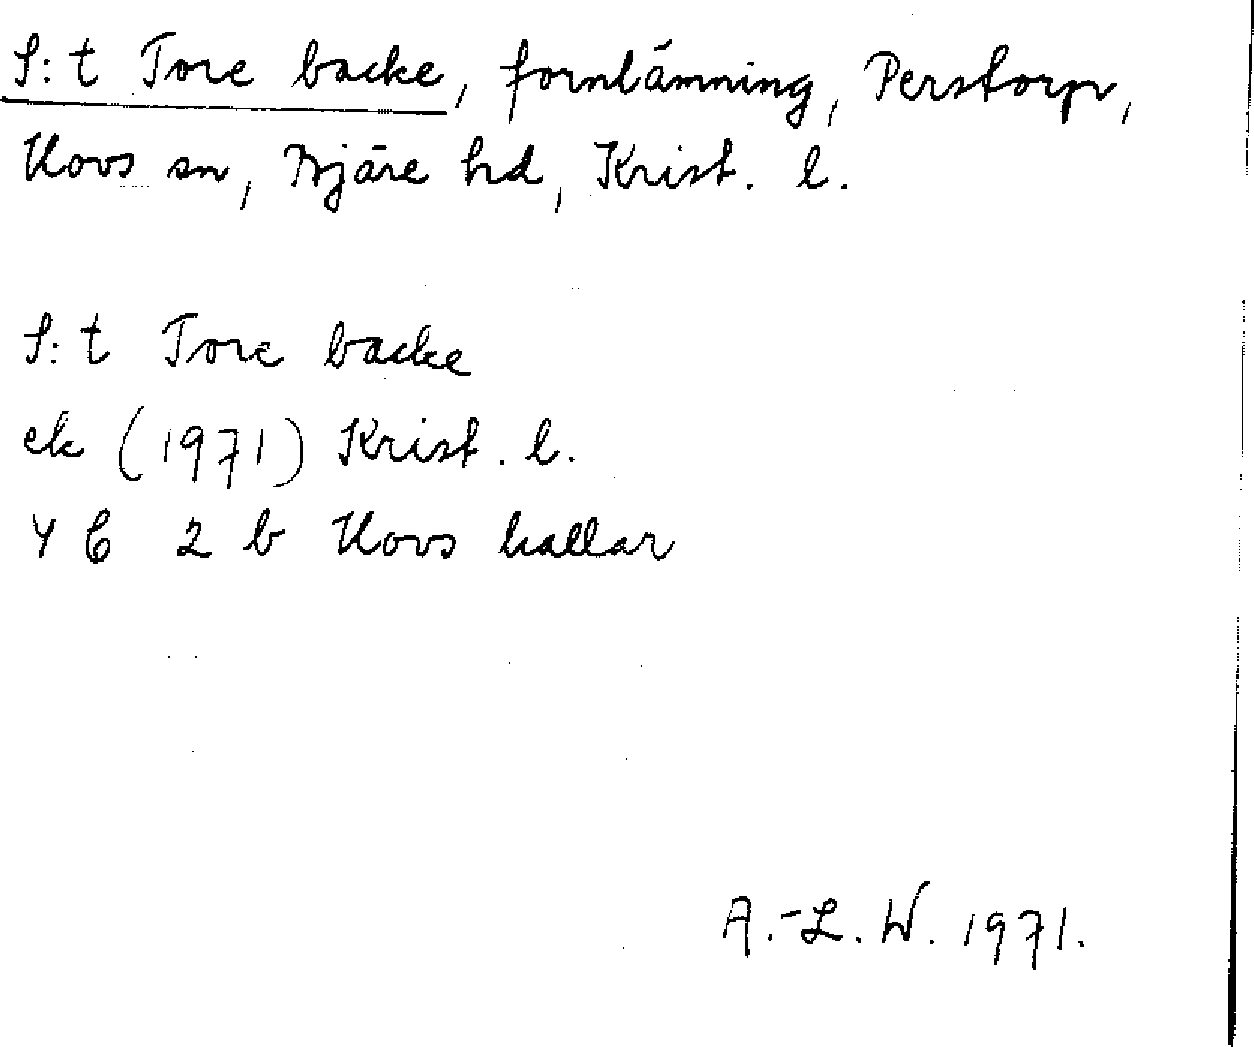 S:t Tore backe, fornlämning, Perstorp,
Hovs sn, Bjäre hd, Krist. l.
S:t Tore backe
ek (1971) Krist. l.
4 C 2 b Hovs hallar
A.-L. W. 1971.